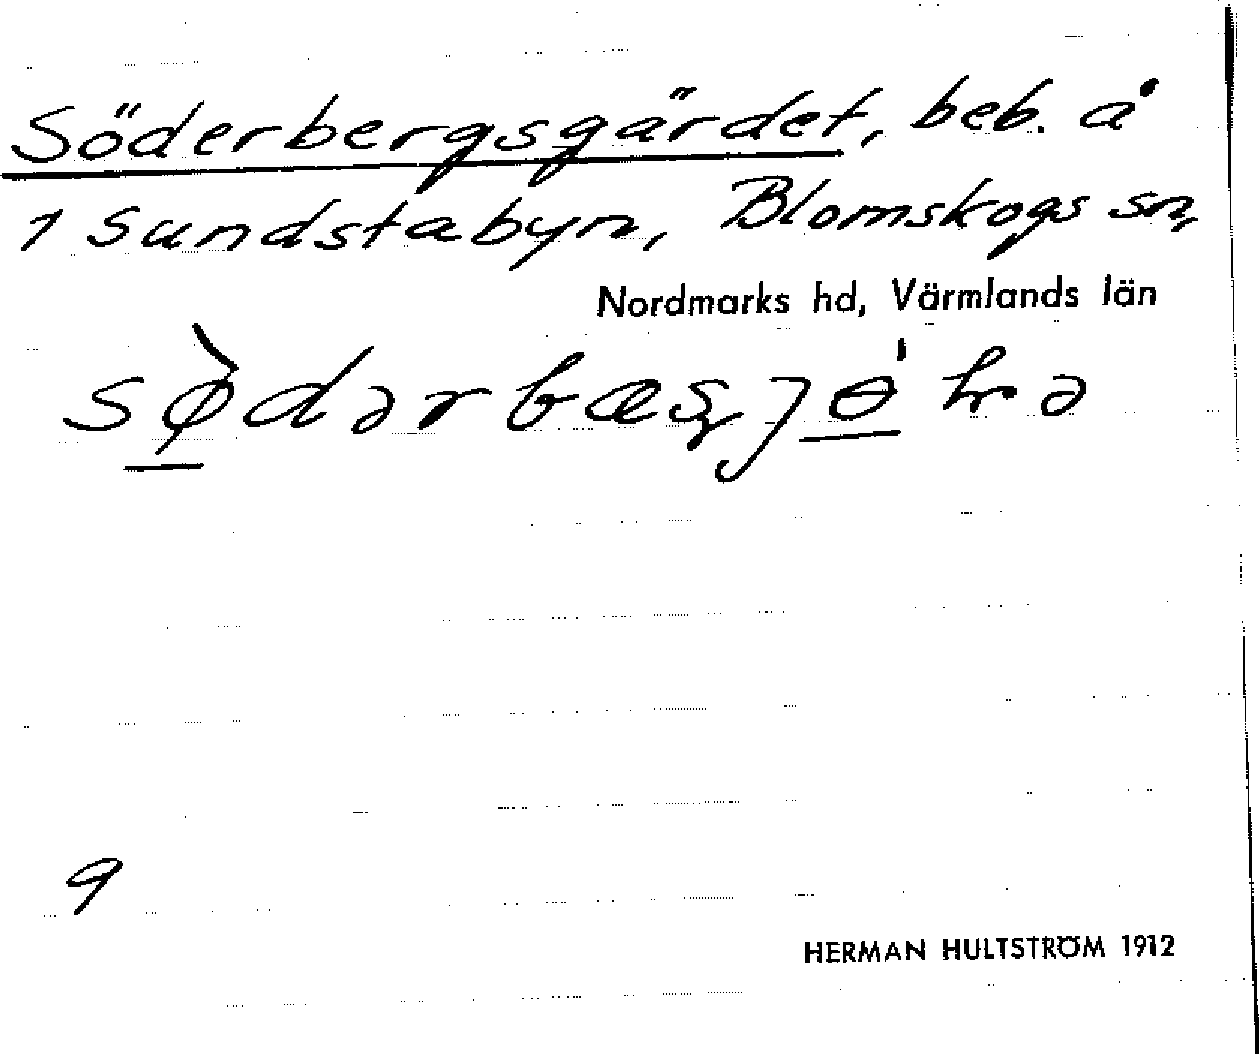 Söderbergsgärdet, beb. å
1 Sundstabyn, Blomskogs sn,
Nordmarks hd, Värmlands län
9
HERMAN HULTSTRÖM 1912